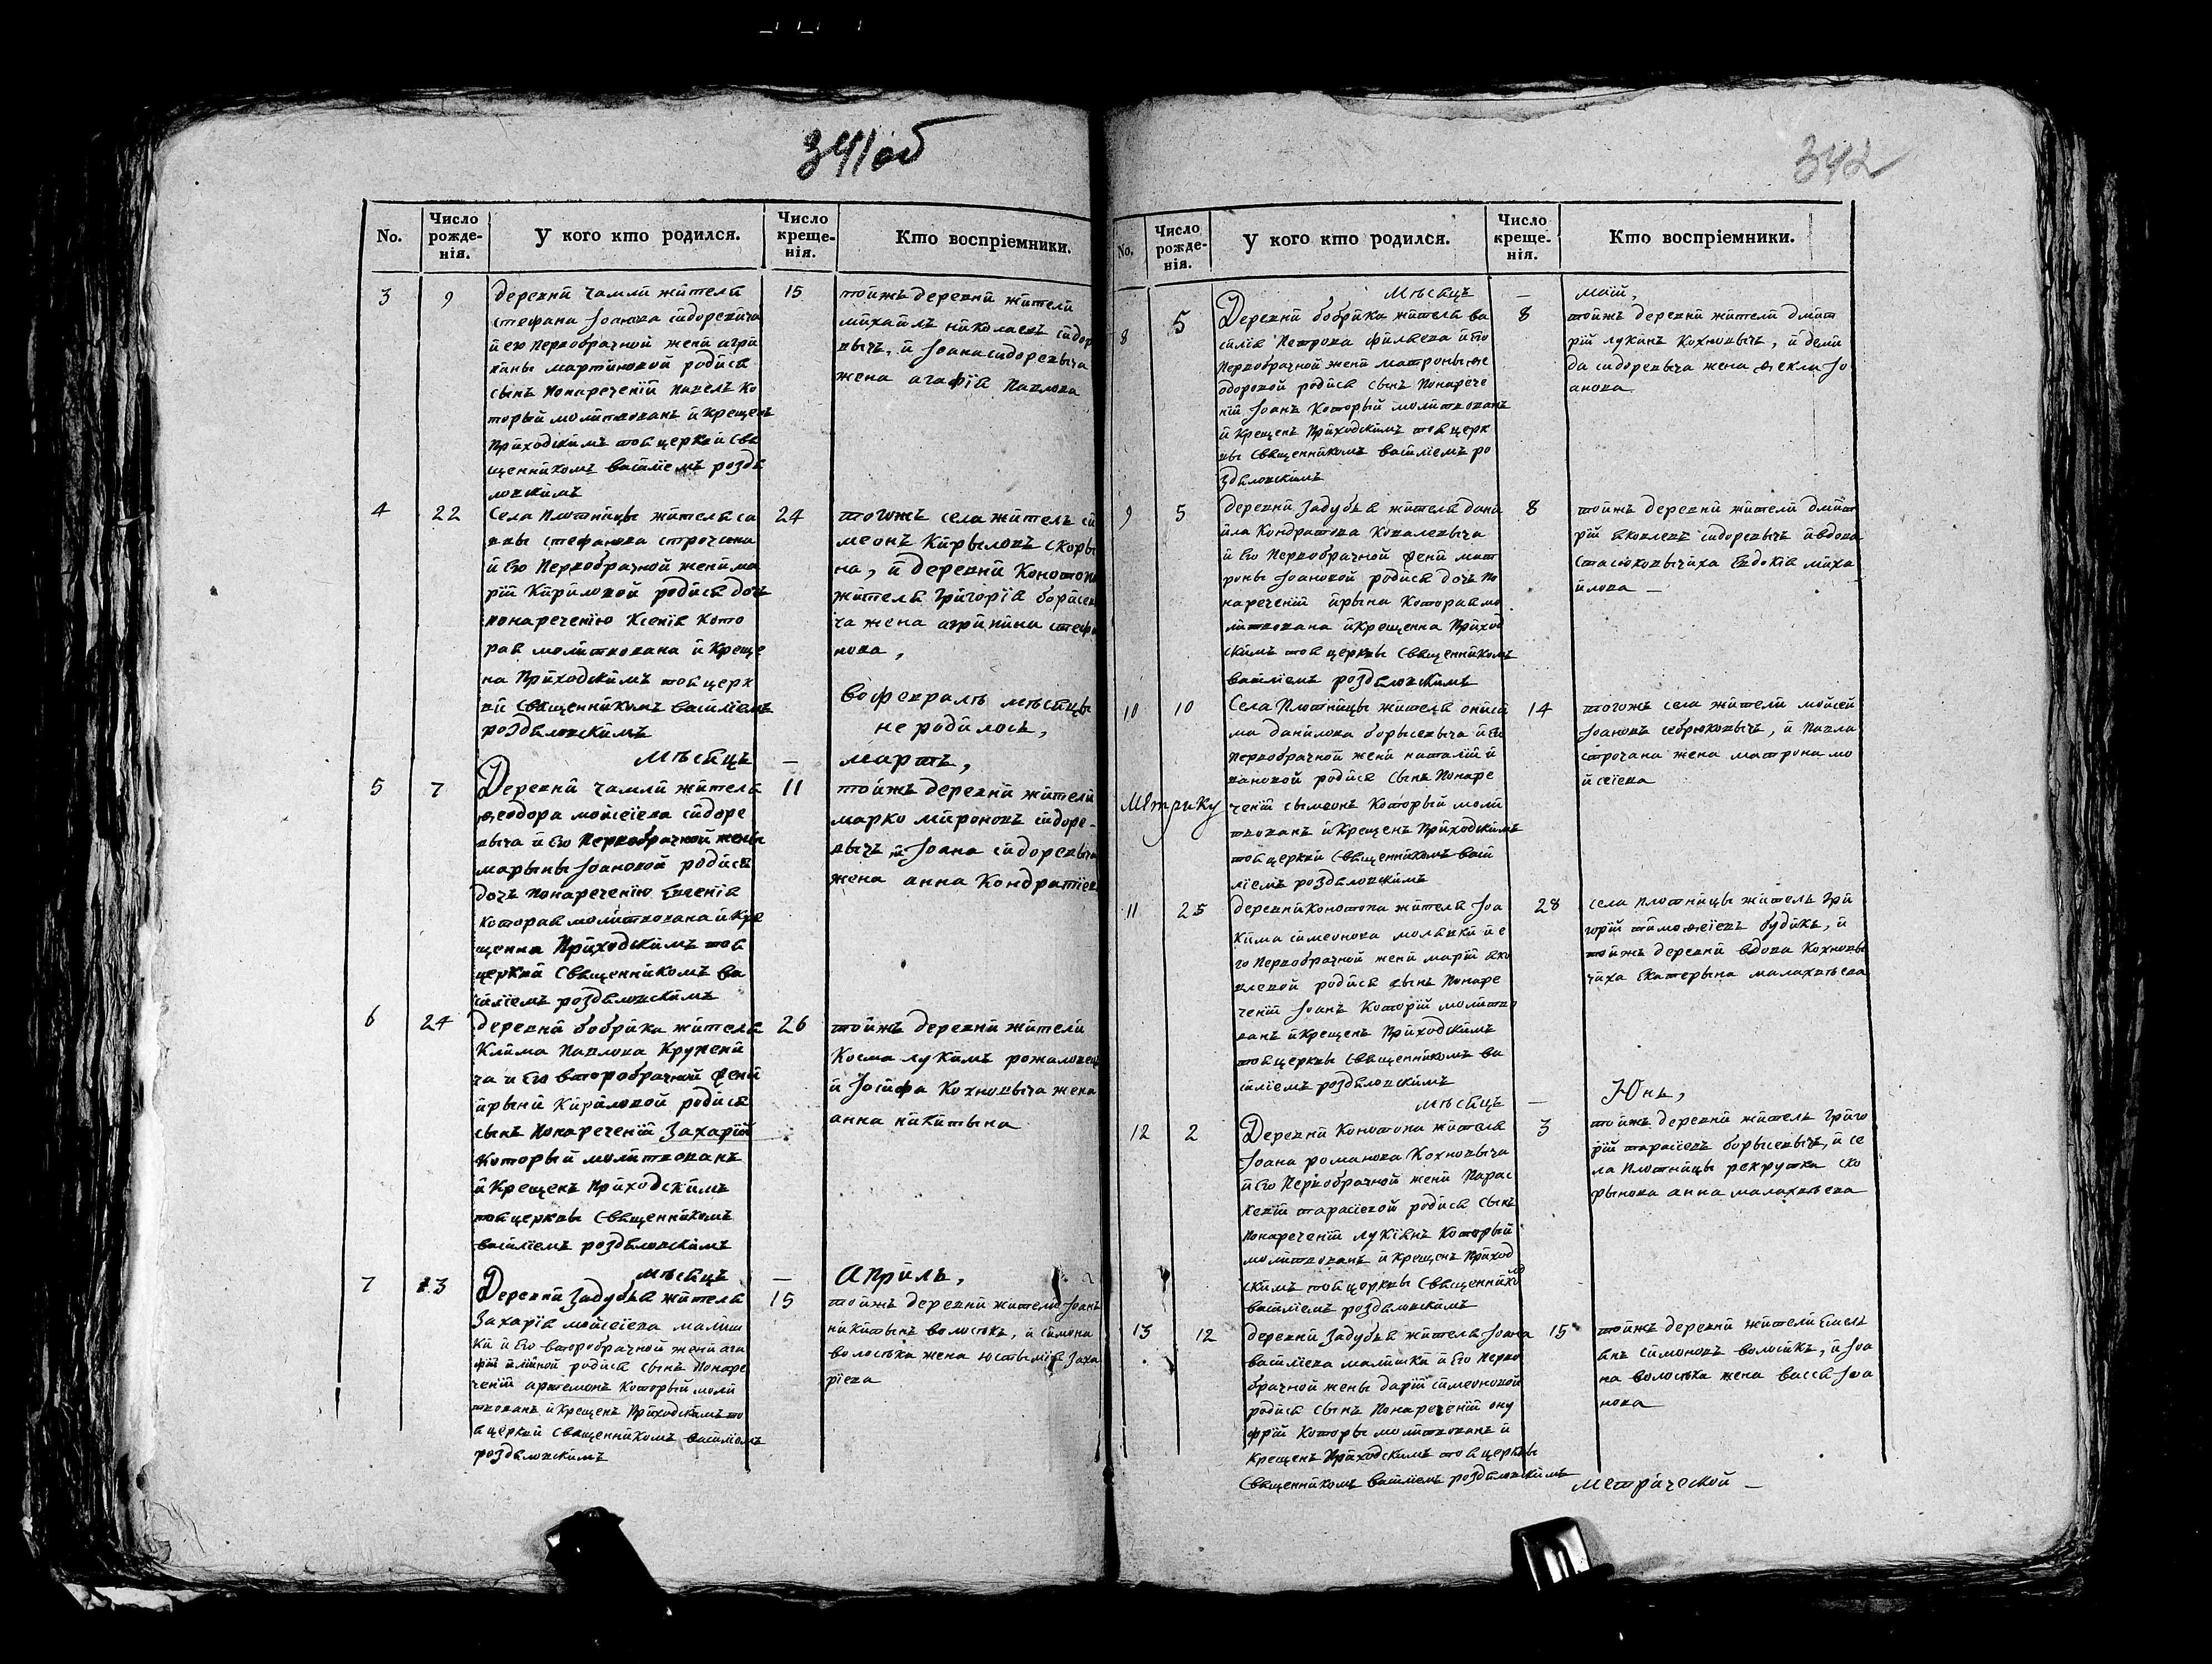 341об
No.
Число рожде- нія.
У кого кто родился.
Число креще- нія.
Кто воспріемники.
3 9 деревни Чамли жителя 15
стефана Іоанова сидоревича
и его первобрачной жени агри
пины мартиновой родися
сынъ понареченій Павелъ ко
торый молитвованъ и крещенъ
приходскимъ тоя церкви свя
щенникомъ василіемъ роздя
ловскимъ
тойжъ деревни жители
михаилъ николаевъ сидор
вычъ, и Іоана сидоревыча
жена агафія Павлова
4 22 Села Плотницы жителя са 24
вы стефанова строчана
и его первобрачной жени ма
рій Кириловой родися дочъ
понареченію Ксенія кото
рая молитвована и креще
на приходскимъ тоя церк
ви священникомъ василіемъ
роздяловскимъ
тогожъ села житель си
меонъ Кирыловъ скоры
на, и деревни Конотопа
жителя Григорія борисев
ча жена агрипина стефа
нова,
во февралѣ мѣсяцы
не родилось,
Мѣсяцъ — мартъ,
5 7 Деревни Чамли жителя 11
ѳеодора мойсеіева сидоре
выча и его первобрачной жены
марыны Іоановой родися
дочъ понареченію Евгенія
которая молитвована и кре
щенна приходскимъ тоя
церкви священникомъ ва
силіемъ роздяловскимъ
тойжъ деревни жители
марко мироновъ сидоре-
вычъ и Іоана сидоревыча
жена анна Кондратіев
6 24 деревни бобрика жителя 26
Клима Павлова Крупени
ча и его второбрачной жени
ирыни Кириловой родися
сынъ понареченій Захарій
который молитвованъ
и крещенъ приходскимъ
тоя церквы священникомъ
василіемъ роздяловскимъ
тойжъ деревни жители
Косма лукимъ рожаловец
и Іосифа Кохновыча жена
анна никитына
мѣсяцъ — Априль,
7 13 Деревни Задубья жителя 15
Захарія мойсеіева малиш
ки и его второбрачной жени ага
фіи илиной родися сынъ понаре
ченій артемонъ который моли
твованъ и крещенъ приходскимъ то
я церкви священникомъ василіемъ
роздяловскимъ
тойжъ деревни жители Іоанъ
никитынъ волосюкъ, и симона
волосюка жена юстымія заха
ріева
342
No.
Число рожде- нія.
У кого кто родился.
Число креще- нія.
Кто воспріемники.
Мѣсяцъ — маій,
8 5 Деревни бобрика жителя ва 8
силія Петрова филѣева и его
первобрачной жени матроны ѳе
одоровой родися сынъ понарече
ній Іоанъ который молитвованъ
и крещенъ приходскимъ тоя церк
вы священникомъ василіемъ ро
здяловскимъ
тойжъ деревни жители дмит
рій лукинъ Кохновычъ, и деми
да сидоревыча жена ѳекла Іо
анова
9 5 деревни Задубья жителя дани 8
ила Кондратова Ковалевыча
и его первобрачной жени мат
роны Іоановой родися дочъ по
нареченій ирына которая мо
литвована и крещенна приход
скимъ тоя церквы священникомъ
василіемъ роздяловскимъ
тойжъ деревни жители дмит
рій яковлевъ сидоревычъ и вдова
стасюковычиха Евдокія миха
илова —
10 10 Села Плотницы жителяониси 14
ма данилова борысевыча и его
первобрачной жени наталіи и
вановой родися сынъ понаре
ченій сымеонъ который моли
твованъ и крещенъ приходскимъ
тоя церкви священникомъ васи
ліемъ роздяловскимъ
тогожъ села жители мойсей
Іоановъ себрюковычъ, и Павла
строчана жена матрона мо
йсеіева
Метрику
11 25 деревни Конотопа жителя Іоа 28
кима симеонова молявки и е
го первобрачной жени маріи яко
влевой родися сынъ понаре
ченій Іоанъ которій молитво
ванъ и крещенъ приходскимъ
тоя церквы священникомъ ва
силіемъ роздяловскимъ
села плотницы житель Гри
горій тимоѳеіевъ будикъ, и
тойжъ деревни вдова Кохновы
чиха Екатерына малахвѣева
мѣсяцъ — Юнь,
12 2 Деревни Конотопа жителя 3
Іоана романова Кохновыча
и его первобрачной жени Парас
кевіи тарасіевой родися сынъ
понареченій лукіянъ который
молитвованъ и крещенъ приход
скимъ тоя церквы священнико
василіемъ роздяловскимъ
тойжъ деревни житель Григо
рій тарасіевъ борысевычъ, и се
ла Плотницы рекрутка ско
рынова анна малахвѣева
13 12 деревни Задубья жителя Іоана 15
василіева малишки и его перво
брачной жены дарій симеоновой
родися сынъ понареченій ону
фрій которы молитвованъ и
крещенъ приходскимъ тоя церквы
священникомъ василіемъ роздяловскимъ
тойжъ деревни жители Емель
янъ симоновъ волосюкъ, и Іоа
на волосюка жена васса Іоа
нова
метрической —